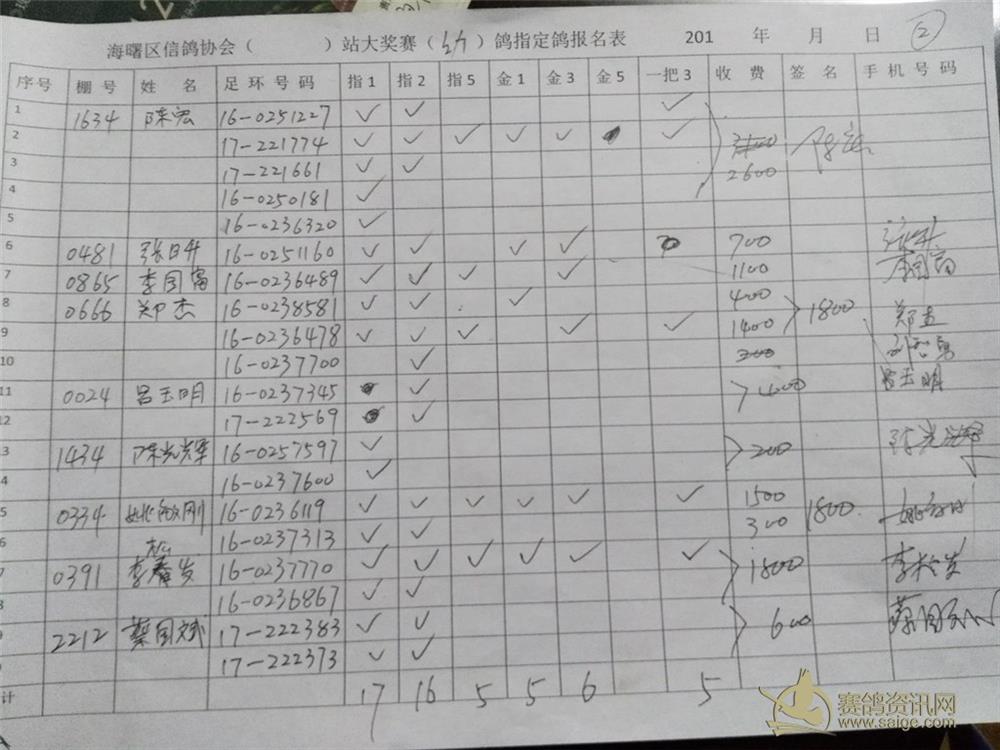 海曙区信鸽协会（ ）站大奖赛（幼）鸽指定鸽报名表 201 年 月 日 ②
序号 棚号 姓 名 足 环 号 码 指1 指2 指5 金1 金3 金5 一把3 收 费 签 名 手 机 号 码
1 1634 陈宏 16-0251227 ✓ ✓ ✓
2 17-221774 ✓ ✓ ✓ ✓ ✓ ✓
3 17-221661 ✓ ✓ 2600
4 16-0250181 ✓
5 16-0236320 ✓
6 0481 张日升 16-0251160 ✓ ✓ ✓ ✓ 700
7 0865 李国富 16-0236489 ✓ ✓ ✓ ✓ 1100 李国富
8 0666 郑杰 16-0238581 ✓ ✓ ✓ 400 1800 郑杰
9 16-0236478 ✓ ✓ ✓ ✓ ✓ 1400
10 16-0237700 ✓ 200
11 0024 吕玉明 16-0237345 ✓ 400 吕玉明
12 17-222569 ✓
3 1434 陈光辉 16-0257597 ✓ 200 陈光辉
4 16-0237600 ✓
5 0334 姚敏刚 16-0236119 ✓ ✓ ✓ ✓ ✓ ✓ 1500 1800
6 16-0237313 ✓ ✓ 300
7 0391 李松岁 16-0237770 ✓ ✓ ✓ ✓ ✓ ✓ 1800
8 16-0236867 ✓ ✓
9 2212 蔡国斌 17-222383 ✓ ✓ 600
17-222373 ✓ ✓
计 17 16 5 5 6 5
赛鸽资讯网
www.saige.com